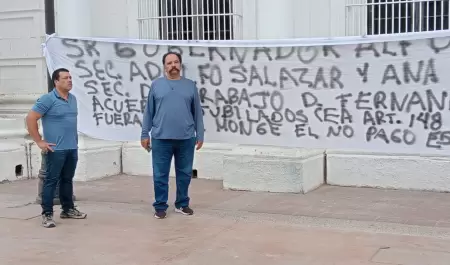 SR GOBERNADOR ALF
SEC AD FO SALAZAR Y ANA
SEC. D RABAJO D. FERNAN
ACUE UBILADOS CEA ART. 148
FUERA MONGE EL NO PAGO ES